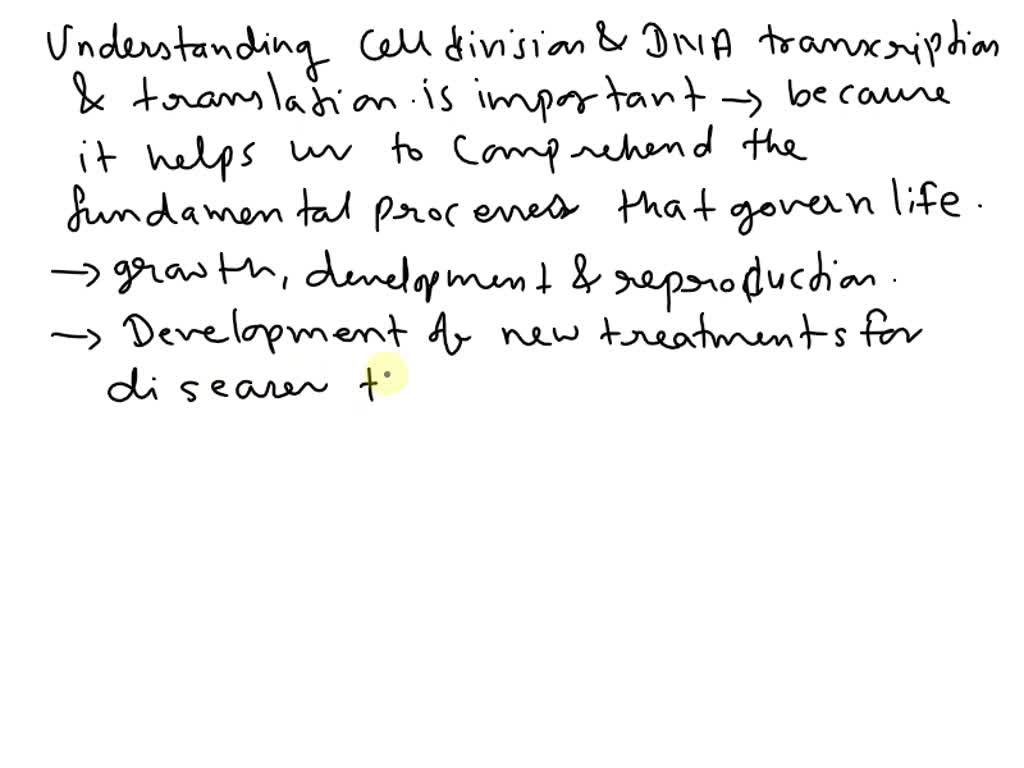 Understanding Cell division & DNA transcription
& translation. is important → because
it helps us to Comprehend the
fundamental processes that govern life.
→ growth, development & reproduction.
→ Development of new treatments for
diseases t